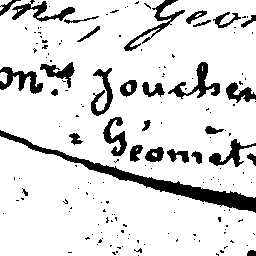 ne, Géom
Mrs Jouchen
= Géomèt